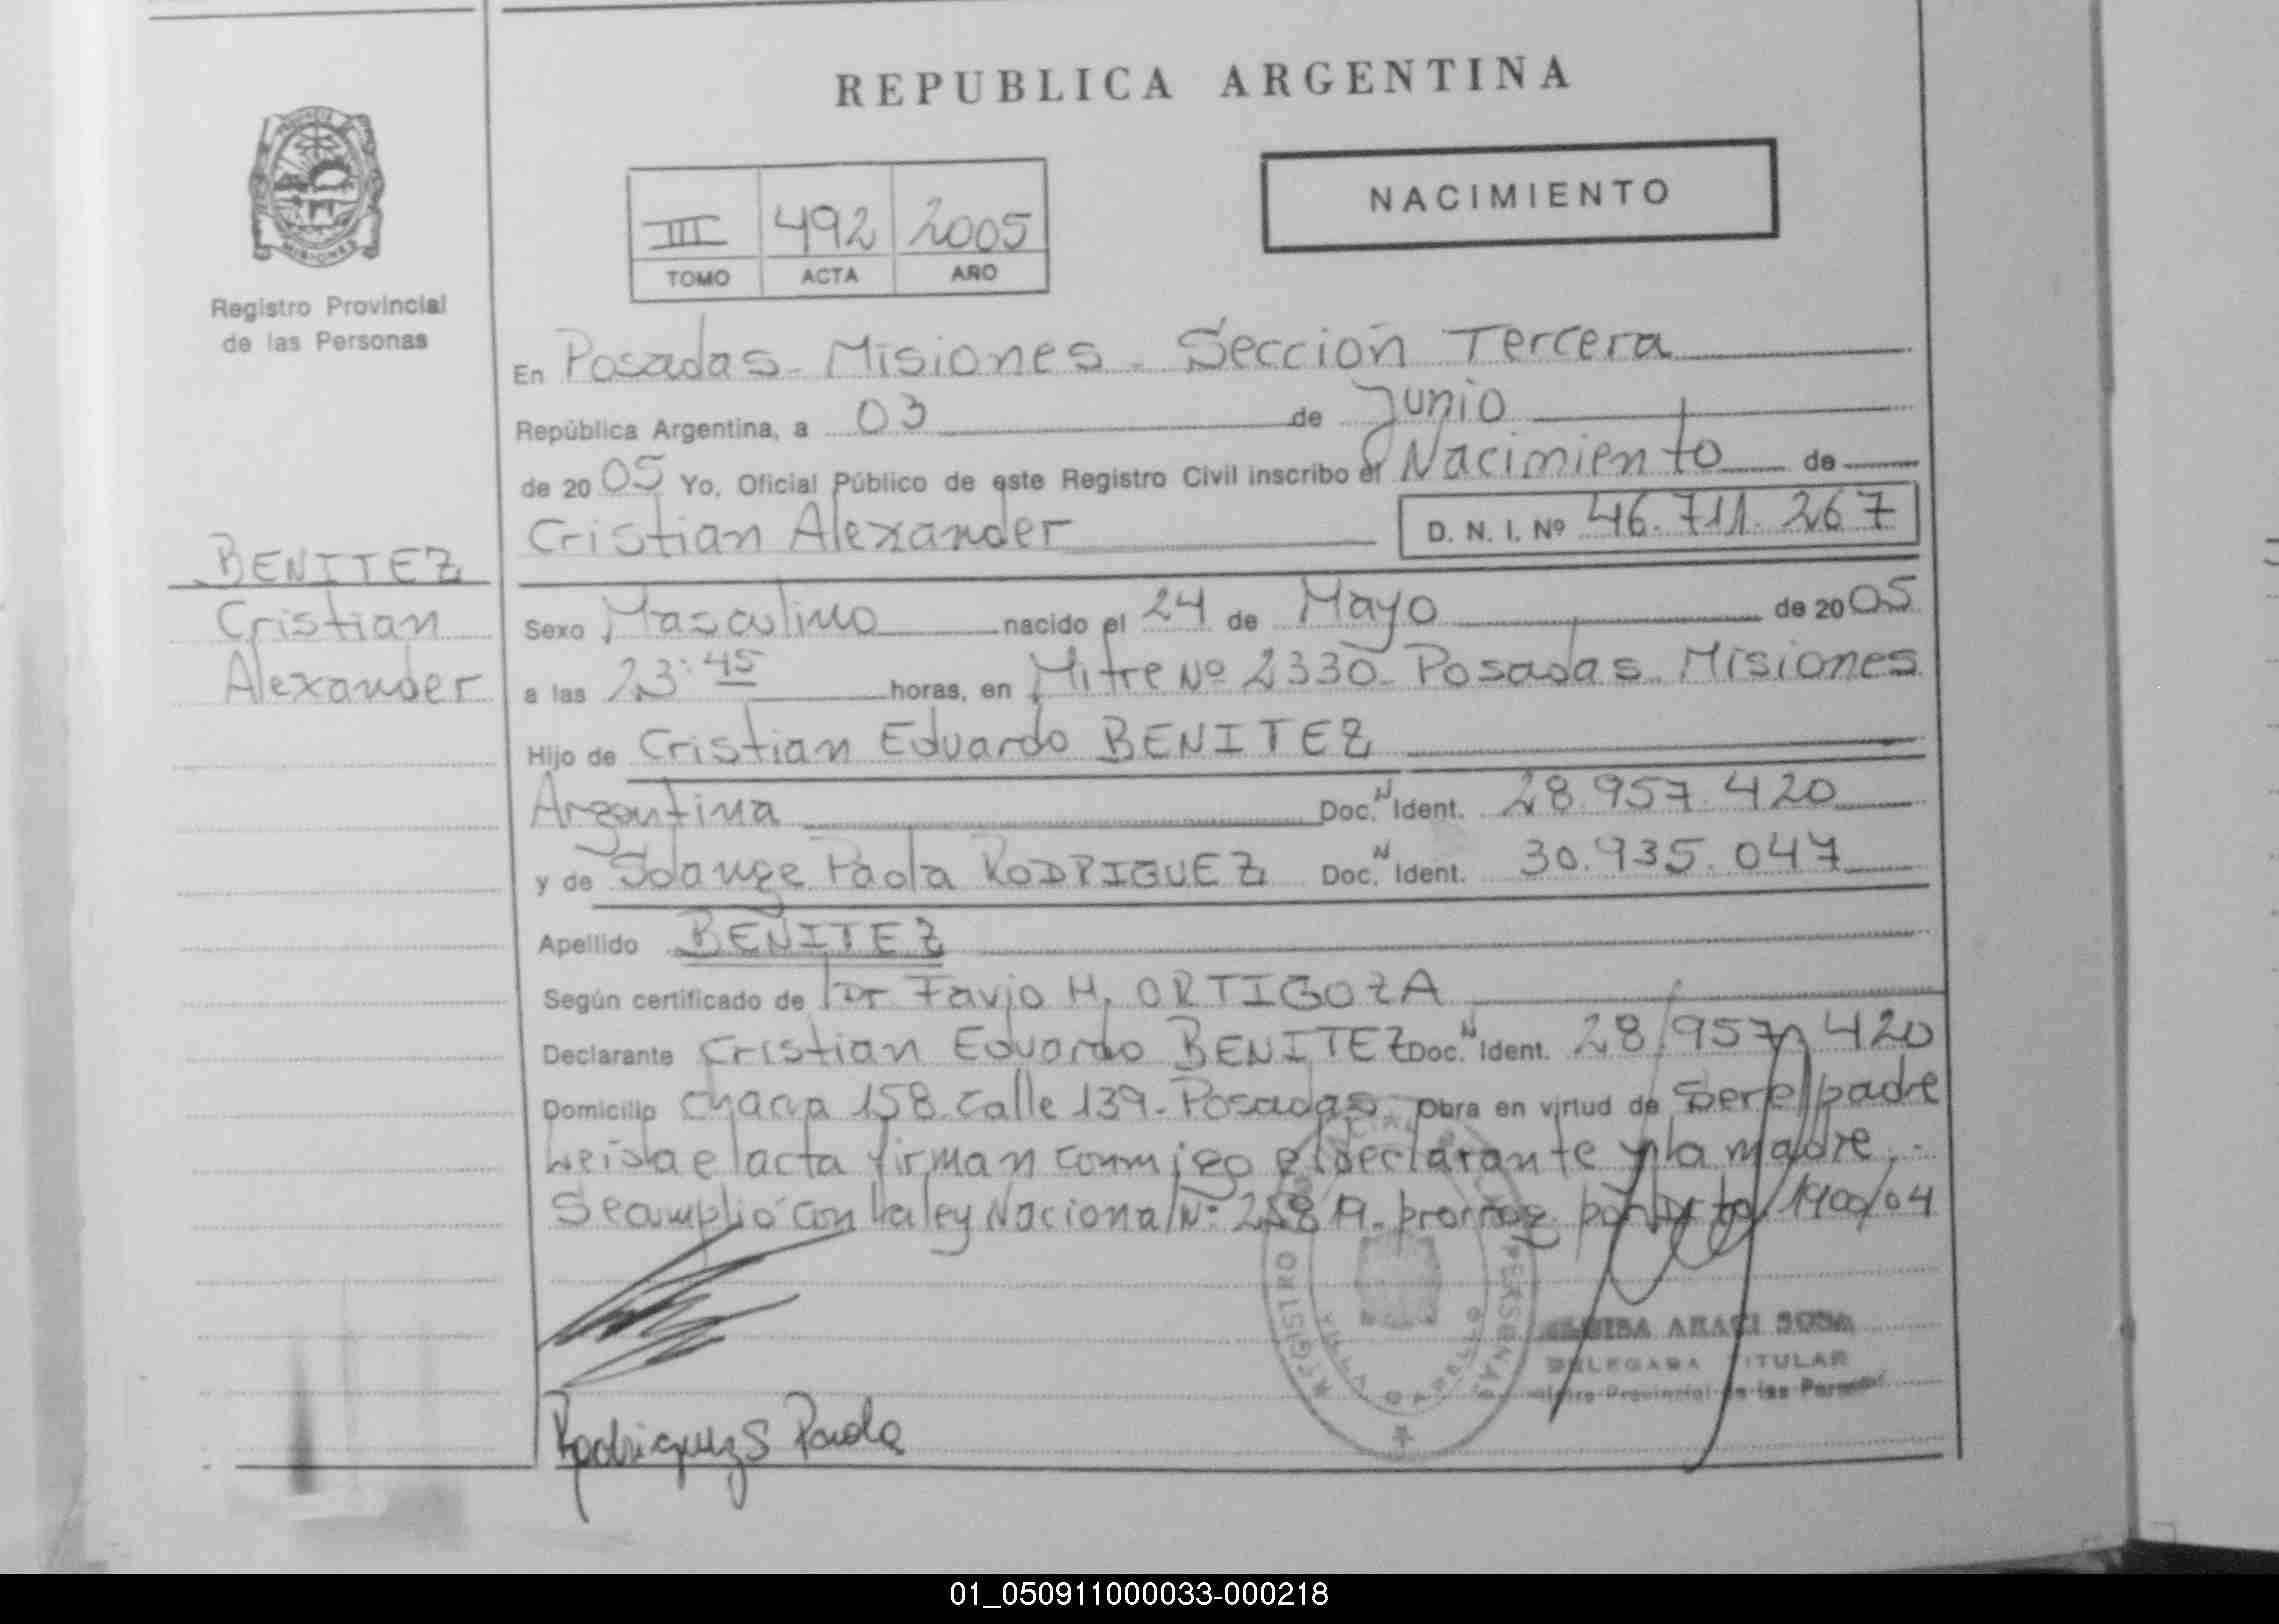 REPUBLICA ARGENTINA
NACIMIENTO
III 492 2005
TOMO ACTA AÑO
Registro Provincial
de las Personas
En Posadas - Misiones - Sección Tercera
República Argentina, a 03 de Junio
de 2005 Yo, Oficial Público de este Registro Civil inscribo el Nacimiento de
Cristian Alexander D. N. I. Nº 46.711.267
BENITEZ
Cristian
Alexander
Sexo Masculino nacido el 24 de Mayo de 2005
a las 23:45 horas, en Mitre Nº 2330 - Posadas - Misiones
Hijo de Cristian Eduardo BENITEZ
Argentina Doc. N Ident. 28.957.420
y de Solange Paola RODRIGUEZ Doc. N Ident. 30.935.047
Apellido BENITEZ
Según certificado de Dr Favio H. ORTIGOZA
Declarante Cristian Eduardo BENITEZ Doc. N Ident. 28.957.420
Domicilio Chacra 158 Calle 139 - Posadas Obra en virtud de Ser el padre
Leida el acta firman conmigo el declarante y la madre.-
Se cumplió con la ley Nacional Nº prorrog. por 1900/04
REGISTRO PERSONAS
VILLA CABELLO
ARACI SOSA
DELEGADA TITULAR
Provincial de las Personas
Rodriguez S Paola
01_050911000033-000218